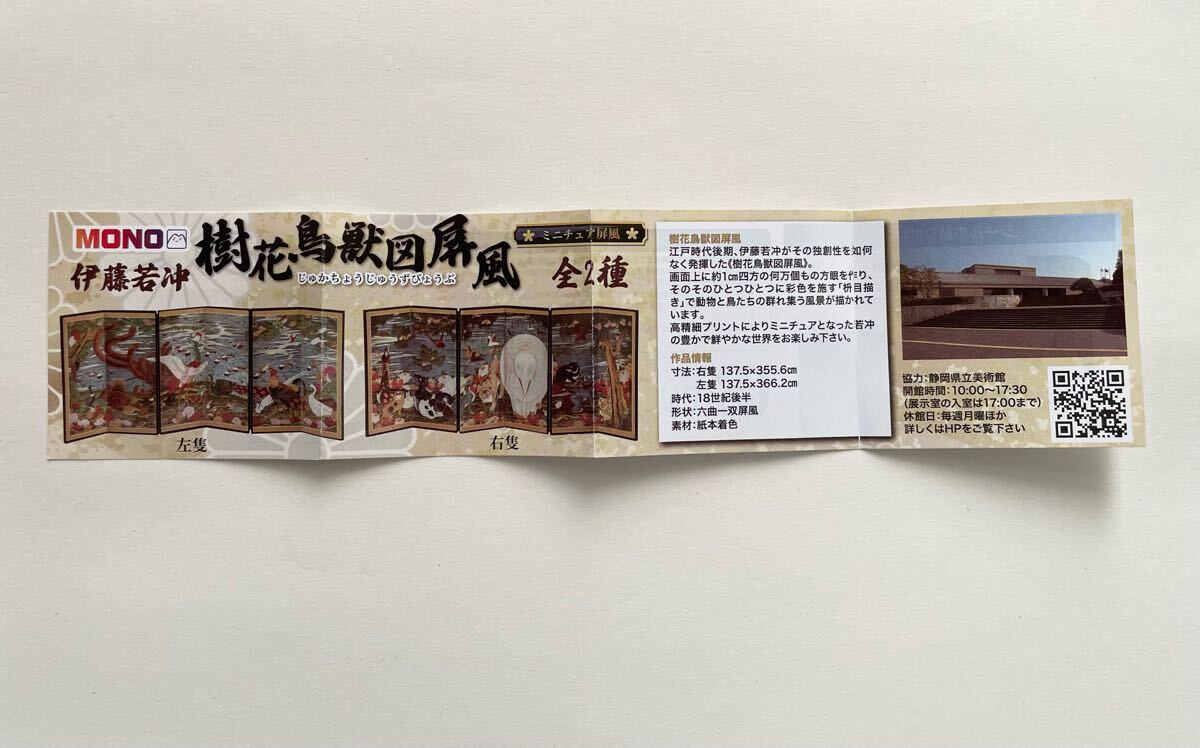 MONO
伊藤若冲
樹花鳥獣図屏風
じゅかちょうじゅうずびょうぶ
ミニチュア屏風
全2種
左隻
右隻
樹花鳥獣図屏風
江戸時代後期、伊藤若冲がその独創性を如何
なく発揮した《樹花鳥獣図屏風》。
画面上に約1cm四方の何万個もの方眼を作り、
そのそのひとつひとつに彩色を施す「枡目描
き」で動物と鳥たちの群れ集う風景が描かれて
います。
高精細プリントによりミニチュアとなった若冲
の豊かで鮮やかな世界をお楽しみ下さい。
作品情報
寸法:右隻 137.5×355.6cm
左隻 137.5×366.2cm
時代:18世紀後半
形状:六曲一双屏風
素材:紙本着色
協力:静岡県立美術館
開館時間:10:00〜17:30
(展示室の入室は17:00まで)
休館日:毎週月曜ほか
詳しくはHPをご覧下さい